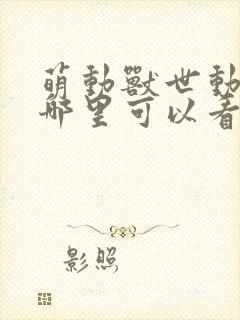 萌動獸世動
哪里可以看
影照